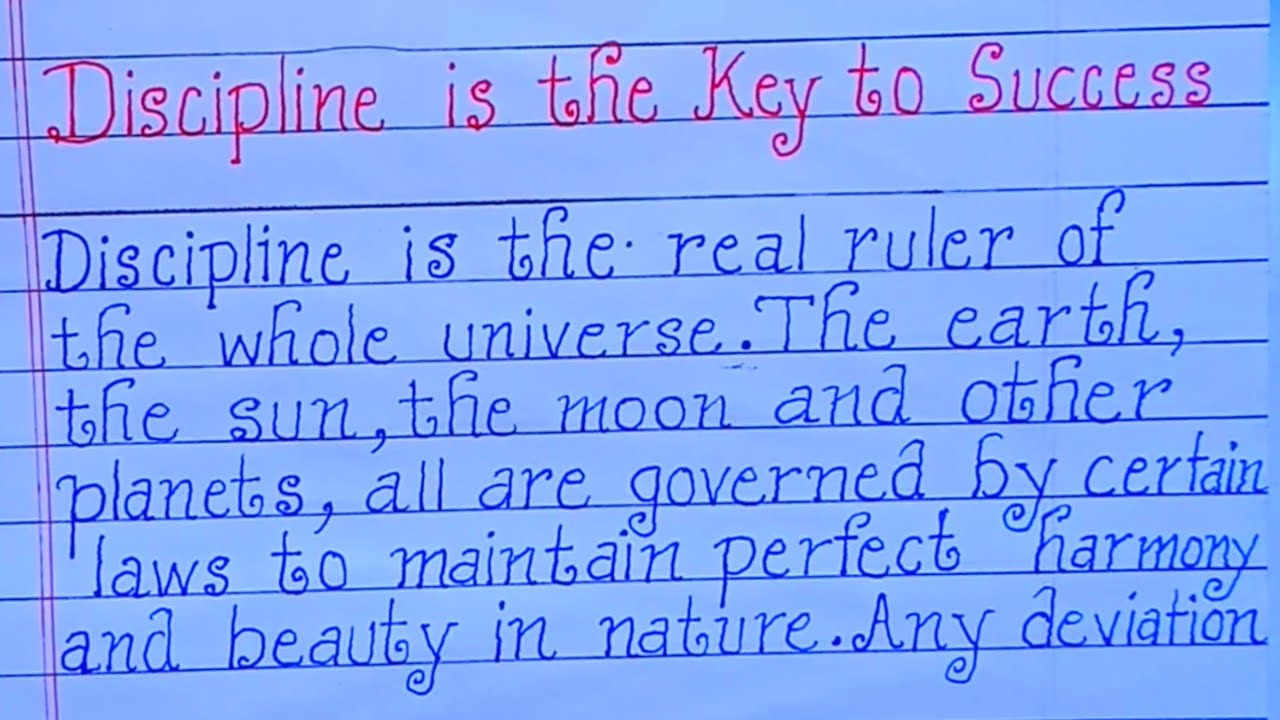 Discipline is the Key to Success
Discipline is the real ruler of
the whole universe. The earth,
the sun, the moon and other
planets, all are governed by certain
laws to maintain perfect harmony
and beauty in nature. Any deviation